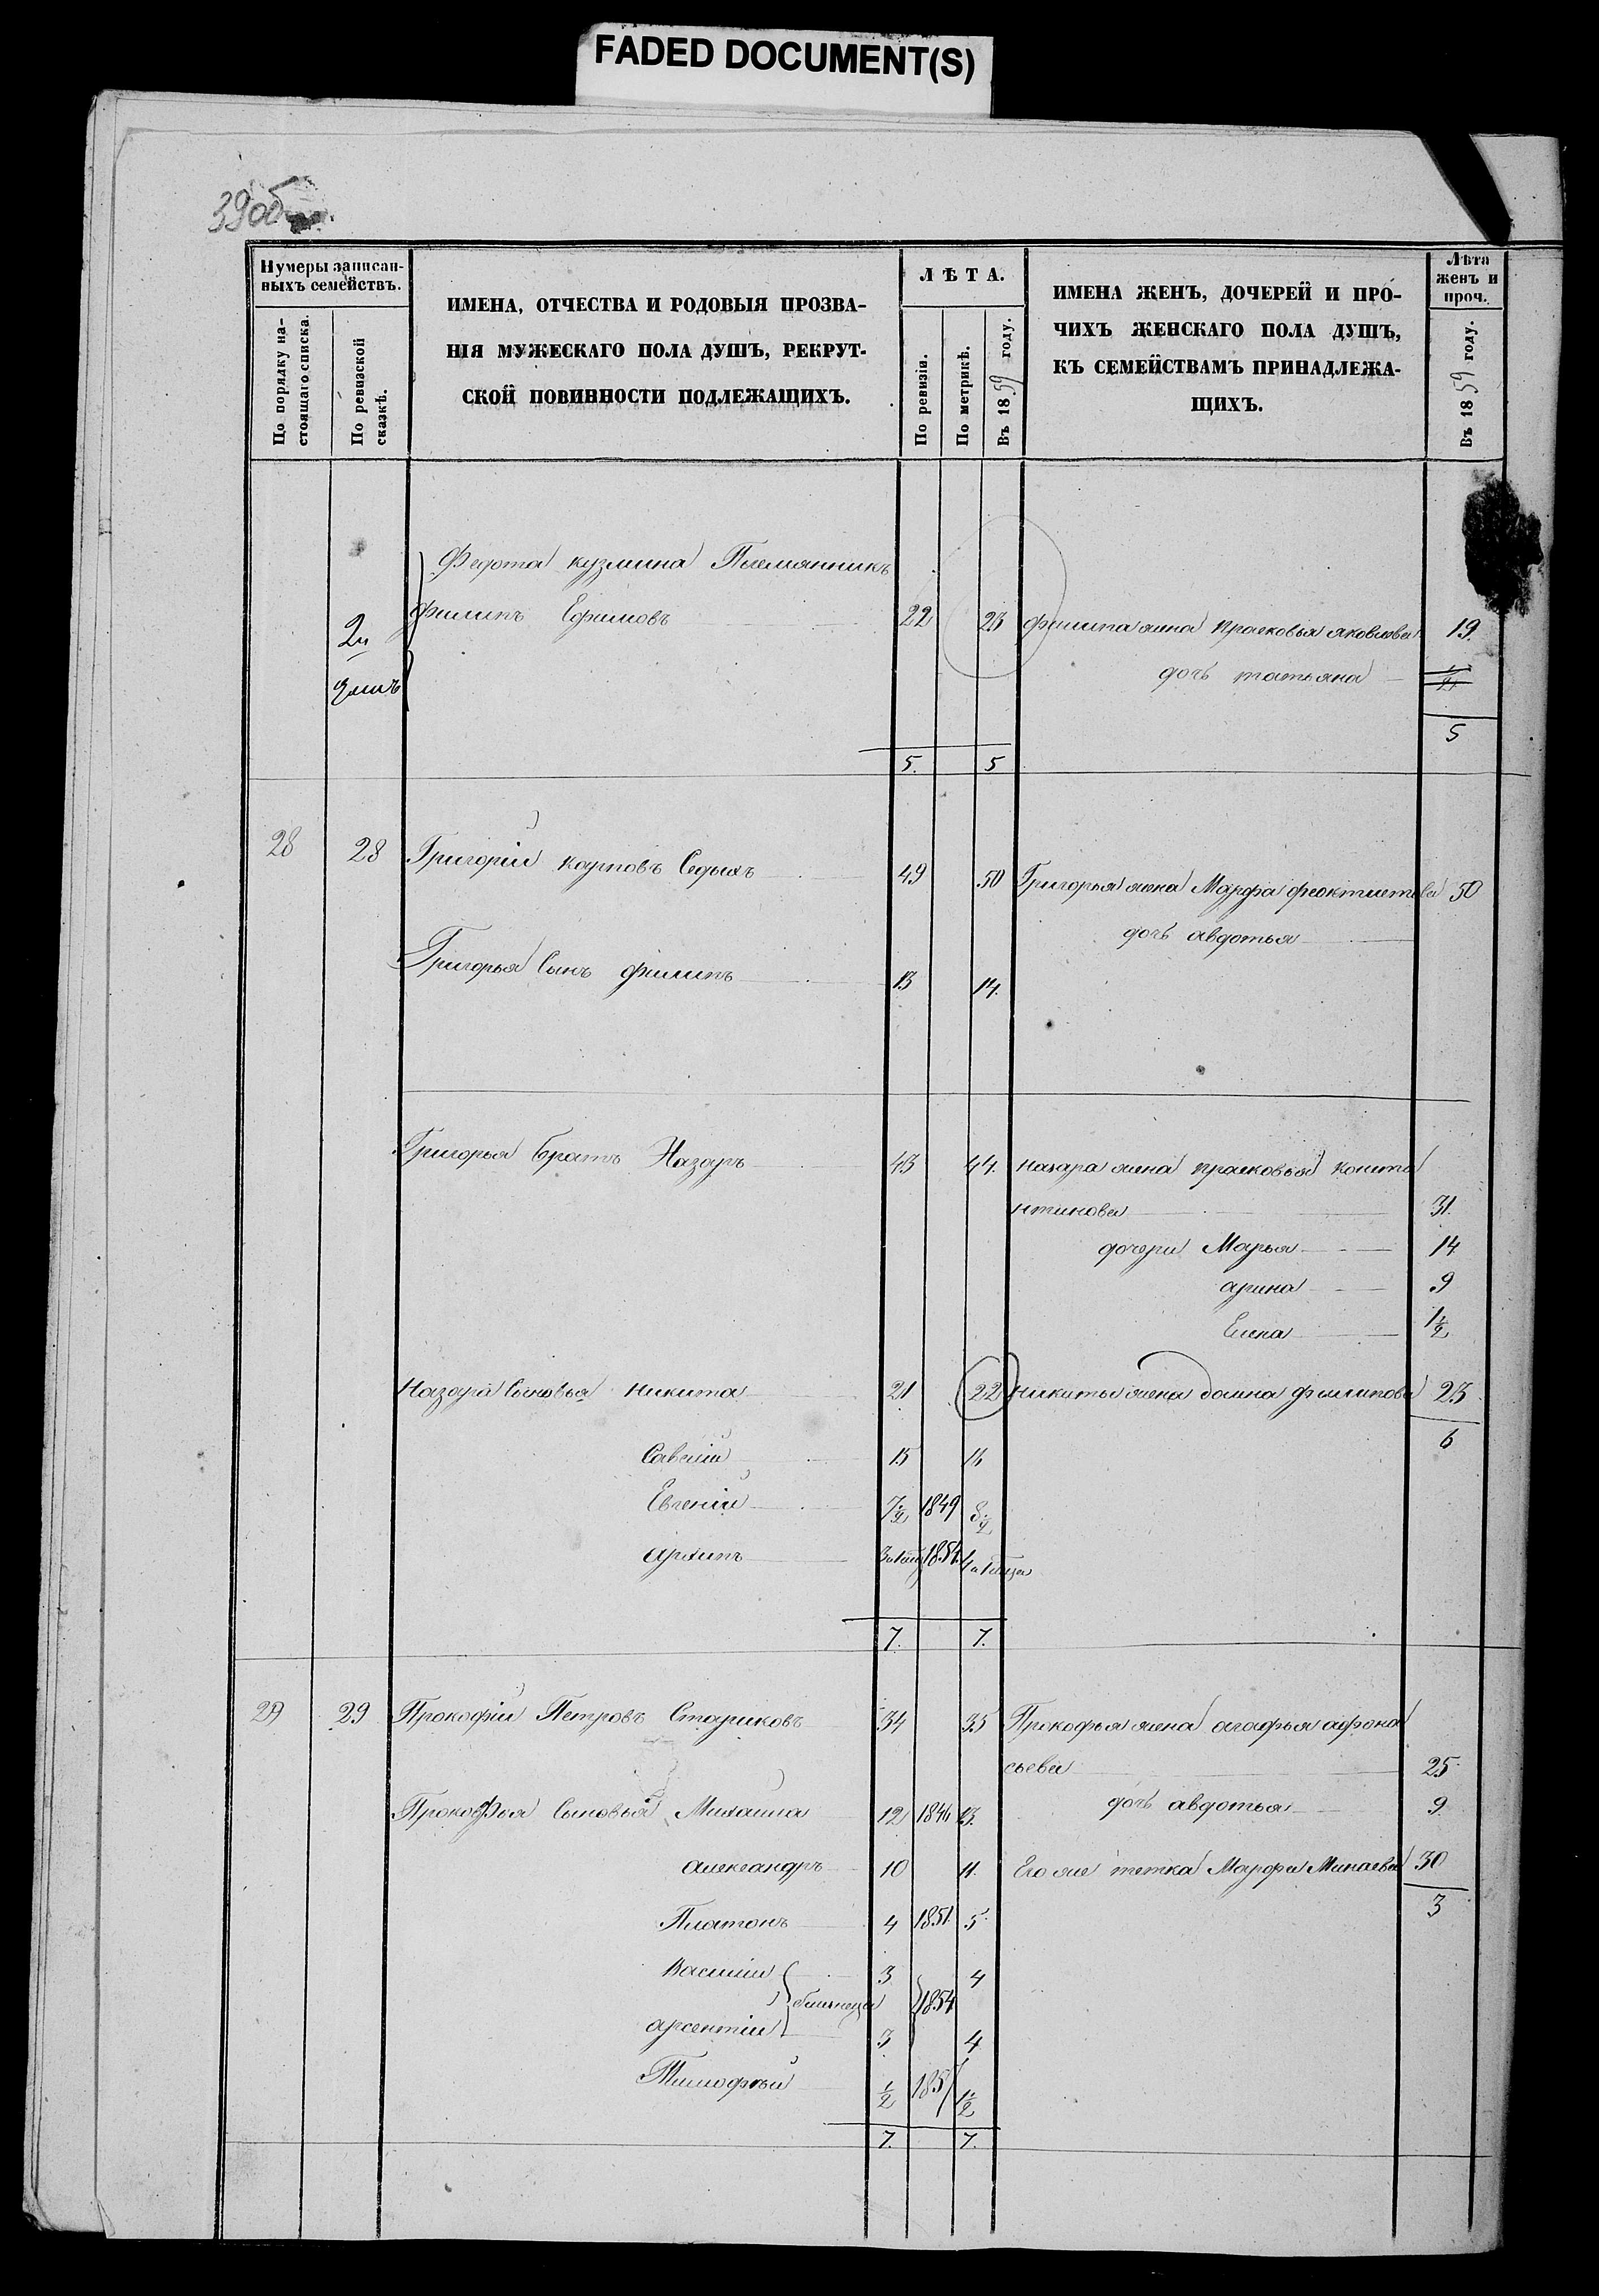 FADED DOCUMENT(S)
39об
Нумеры записан-
ныхъ семействъ.
По порядку на-
стоящаго списка.
По ревизской
сказкѣ.
ИМЕНА, ОТЧЕСТВА И РОДОВЫЯ ПРОЗВА-
НІЯ МУЖЕСКАГО ПОЛА ДУШЪ, РЕКРУТ-
СКОЙ ПОВИННОСТИ ПОДЛЕЖАЩИХЪ.
ЛѢТА.
По ревизіи.
По метрикѣ.
Въ 1859 году.
ИМЕНА ЖЕНЪ, ДОЧЕРЕЙ И ПРО-
ЧИХЪ ЖЕНСКАГО ПОЛА ДУШЪ,
КЪ СЕМЕЙСТВАМЪ ПРИНАДЛЕЖА-
ЩИХЪ.
Лѣта
женъ и
проч.
Въ 1859 году.
Федота кузмина Племянникъ
филипъ Ефимовъ 22 23 филипа жена прасковья яковлева 19.
дочь татьяна
5
5. 5
28 28 Григорій карповъ Седыхъ 49 50 Григорья жена Марфа феоктистова 50
дочь авдотья
Григорья Сынъ филипъ 13 14.
Григорья братъ Назаръ 43 44. назара жена прасковья конста
нтинова 31.
дочери Марья 14
арина 9
Елена 1½
Назара Сыновья никита 21 22 никиты жена домна филипова 23
6
Савелій 15 16
Евгеній 7½ 1849 8½
архипъ 1854
7. 7.
29 29 Прокофій Петровъ Стариковъ 34 35 Прокофья жена агафья афона
сьева 25.
Прокофья Сыновья Михаила 12 1846 13. дочь авдотья 9.
александръ 10 11. Его же тетка Марфа Минаева 30
3
Платонъ 4 1851. 5.
Василій 3 4
близнецы 1854
арсентій 3 4
Тимофѣй ½ 1857 1½
7. 7.